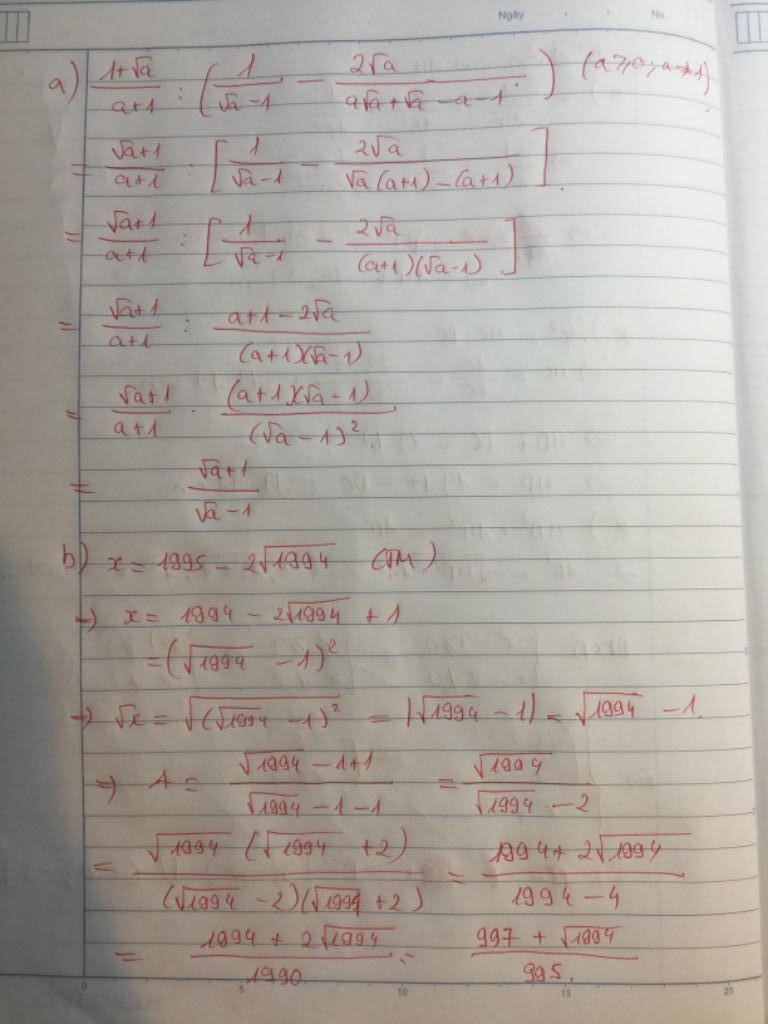 Ngày No.
a) \frac{1+\sqrt{a}}{a+1} : \left( \frac{1}{\sqrt{a}-1} - \frac{2\sqrt{a}}{a\sqrt{a}+\sqrt{a}-a-1} \right) (a ≥ 0; a ≠ 1)
= \frac{\sqrt{a}+1}{a+1} : \left[ \frac{1}{\sqrt{a}-1} - \frac{2\sqrt{a}}{\sqrt{a}(a+1)-(a+1)} \right].
= \frac{\sqrt{a}+1}{a+1} : \left[ \frac{1}{\sqrt{a}-1} - \frac{2\sqrt{a}}{(a+1)(\sqrt{a}-1)} \right]
= \frac{\sqrt{a}+1}{a+1} : \frac{a+1-2\sqrt{a}}{(a+1)(\sqrt{a}-1)}
= \frac{\sqrt{a}+1}{a+1} \cdot \frac{(a+1)(\sqrt{a}-1)}{(\sqrt{a}-1)^2}
= \frac{\sqrt{a}+1}{\sqrt{a}-1}
b) x = 1995 - 2\sqrt{1994} (TM)
→ x = 1994 - 2\sqrt{1994} + 1
= (\sqrt{1994} - 1)^2
⇒ \sqrt{x} = \sqrt{(\sqrt{1994} - 1)^2} = |\sqrt{1994} - 1| = \sqrt{1994} - 1.
⇒ A = \frac{\sqrt{1994} - 1 + 1}{\sqrt{1994} - 1 - 1} = \frac{\sqrt{1994}}{\sqrt{1994} - 2}
= \frac{\sqrt{1994} (\sqrt{1994} + 2)}{(\sqrt{1994} - 2)(\sqrt{1994} + 2)} = \frac{1994 + 2\sqrt{1994}}{1994 - 4}
= \frac{1994 + 2\sqrt{1994}}{1990} = \frac{997 + \sqrt{1994}}{995}.
0 5 10 15 20